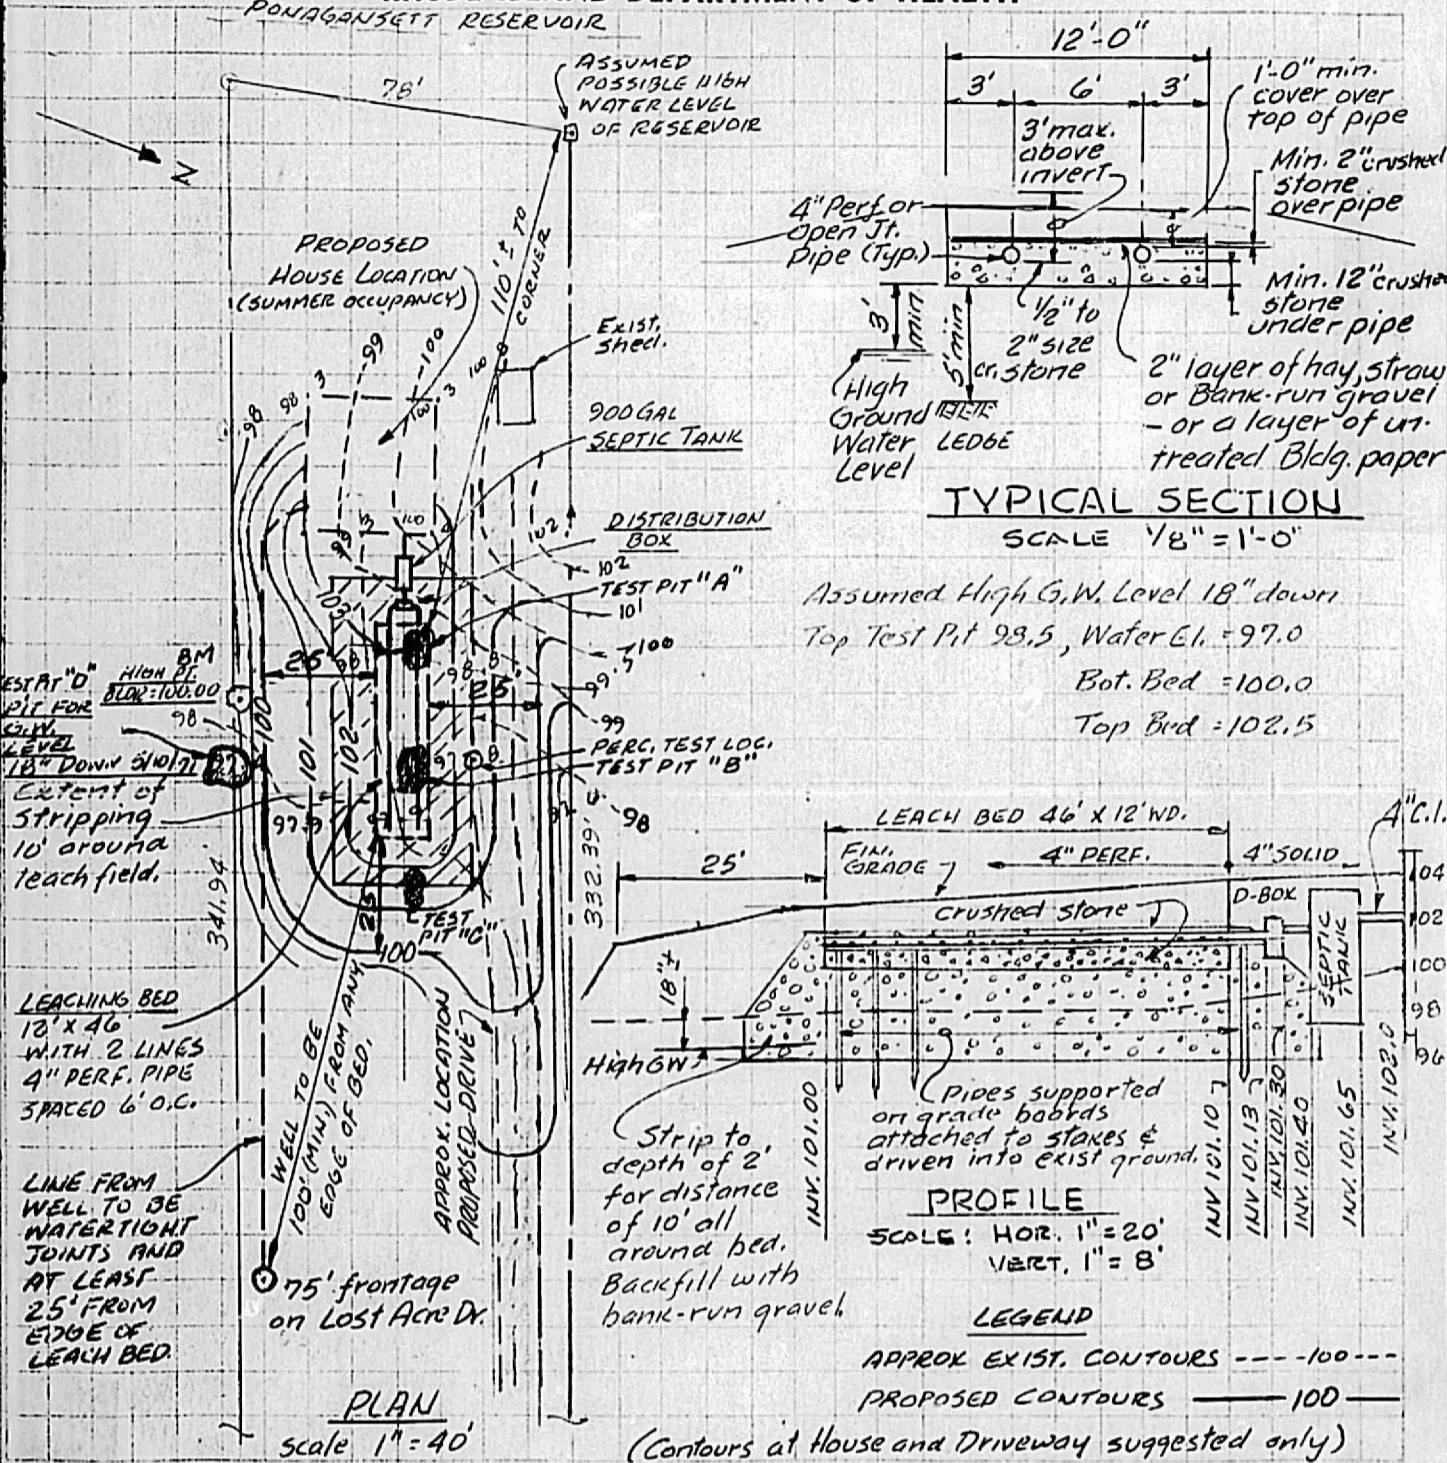 PONAGANSETT RESERVOIR
78'
ASSUMED
POSSIBLE HIGH
WATER LEVEL
OF RESERVOIR
N
110'± TO
CORNER
PROPOSED
HOUSE LOCATION
(SUMMER OCCUPANCY)
Exist.
Shed.
900 GAL
SEPTIC TANK
DISTRIBUTION
BOX
TEST PIT "A"
102
101
100
99.5
99
98
PERC. TEST LOC.
TEST PIT "B"
BM
HIGH PT.
BLDR=100.00
TEST PIT "D"
PIT FOR
G.W.
LEVEL
18" DOWN 5/10/71
Extent of
Stripping
10' around
leach field.
25'
25'
25
100
101
102
103
341.94'
332.39'
TEST
PIT "C"
100
LEACHING BED
12' X 46'
WITH 2 LINES
4" PERF. PIPE
SPACED 6' O.C.
LINE FROM
WELL TO BE
WATERTIGHT
JOINTS AND
AT LEAST
25' FROM
EDGE OF
LEACH BED.
WELL TO BE
100' (MIN) FROM ANY
EDGE OF BED.
APPROX. LOCATION
PROPOSED DRIVE
75' frontage
on Lost Acre Dr.
PLAN
Scale 1" = 40'
12'-0"
3' 6' 3'
1'-0" min.
cover over
top of pipe
3' max.
above
invert
Min. 2" crushed
stone
over pipe
4" Perf. or
Open Jt.
Pipe (Typ.)
Min. 12" crushed
stone
under pipe
3' min
5' min
1/2" to
2" size
cr. stone
High
Ground
Water
Level
LEDGE
2" layer of hay, straw
or Bank-run gravel
- or a layer of un-
treated Bldg. paper
TYPICAL SECTION
SCALE 1/8" = 1'-0"
Assumed High G.W. Level 18" down
Top Test Pit 98.5, Water El. = 97.0
Bot. Bed = 100.0
Top Bed = 102.5
LEACH BED 46' X 12' WD.
4" C.I.
25'
FIN.
GRADE
4" PERF.
4" SOLID
D-BOX
Crushed Stone
SEPTIC
TANK
104
102
100
98
96
18"±
High GW
Pipes supported
on grade boards
attached to stakes &
driven into exist ground.
Strip to
depth of 2'
for distance
of 10' all
around bed.
Backfill with
bank-run gravel.
INV. 101.00
INV 101.10
INV 101.13
INV. 101.30
INV. 101.40
INV. 101.65
INV. 102.0
PROFILE
SCALE: HOR. 1" = 20'
VERT. 1" = 8'
LEGEND
APPROX EXIST. CONTOURS ----100---
PROPOSED CONTOURS —— 100 ——
(Contours at House and Driveway suggested only)